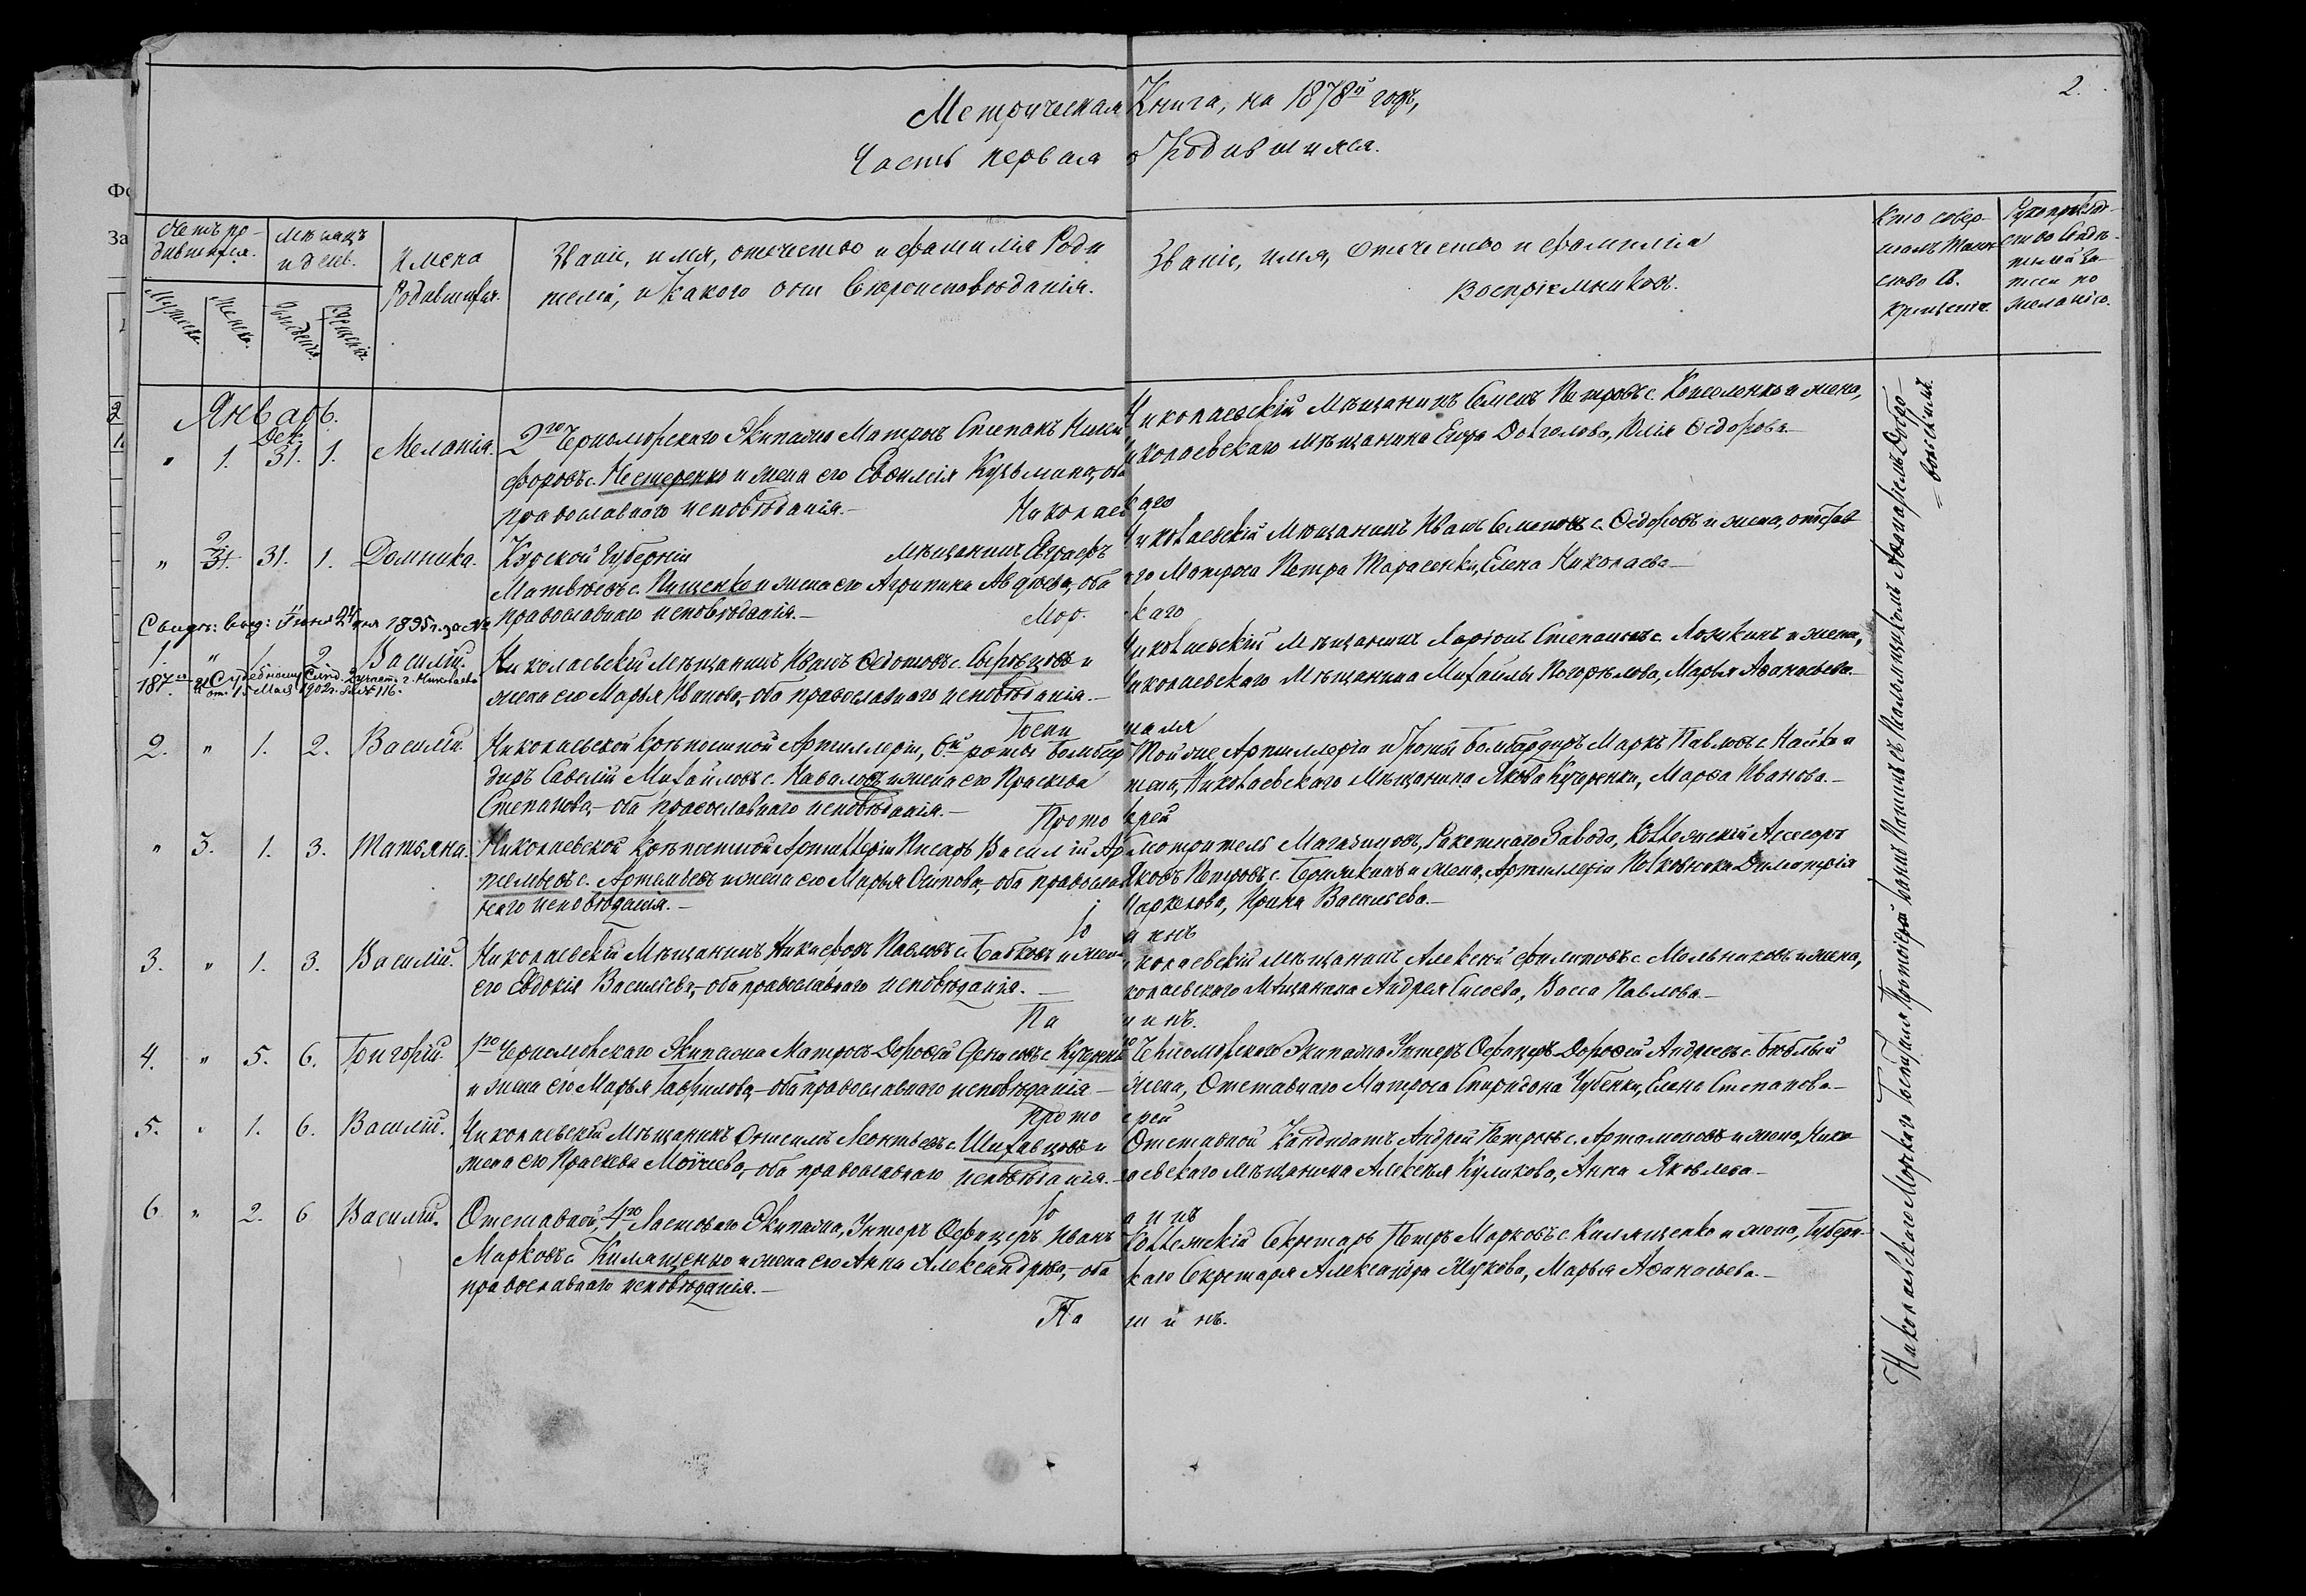 Метрическая Книга, на 1878й годъ,
2.
Часть первая о Родившихся.
Счетъ родившихся.
Мужеска.
Женска.
Мѣсяцъ и день.
Рожденія.
Крещенія.
Имена Родившихся.
Званіе, имя, отечество и фамилія Роди
телей, и какого они Вѣроисповѣданія.
Званіе, имя, отечество и фамилія
Воспріемниковъ.
Кто совер-
шалъ Таин
ство Св.
Крещенія.
Рукоприклад-
ство Свидѣ-
телей за-
писи по
желанію.
Январь.
Дек.
" 1. 31. 1. Меланія. 2го Черноморскаго Экипажа Матросъ Степанъ Ники
форовъ с. Нестеренко и жена его Евфимія Кузьмина, оба
православнаго исповѣданія.—
Николаевскій Мѣщанинъ Семенъ Петровъ с. Коваленко и жена,
Николаевскаго мѣщанина Егора Долголова, Юлія Ѳедорова—
Николаевскаго
" 2. 31. 31. 1. Домника. Курской Губерніи мѣщанинъ Евграфъ
Матвѣевъ с. Пищенко и жена его Агрипина Авдѣева, оба
православнаго исповѣданія.—
Николаевскій Мѣщанинъ Иванъ Семеновъ с. Ѳедоровъ и жена, отстав
наго Матроса Петра Тарасенки, Елена Николаева—
Морскаго
Свидѣ: выд: Іюня 24 дня 1895 г. за №
187.
1. " 1. 2. Василій. Николаевскій Мѣщанинъ Иванъ Ѳедотовъ с. Сыровцовъ и
жена его Марья Иванова, оба православнаго исповѣданія.—
Николаевскій Мѣщанинъ Ларіонъ Степановъ с. Лозикинъ и жена,
Николаевскаго Мѣщанина Михайлы Погорѣлова, Марья Аѳанасьева.—
и Судебному Слѣд. 2 участ. г. Николаева
от. 1. Мая 1902 г. за № 116.
Госпиталя
2. " 1. 2. Василій. Николаевской Крѣпостной Артиллеріи, 6й роты Бомбар
диръ Савелій Михайловъ с. Навалов и жена его Прасковья
Степанова, оба православнаго исповѣданія.—
Той же Артиллеріи и роты Бомбардиръ Маркъ Павловъ с. Найко и
жена, Николаевскаго Мѣщанина Якова Кучеренки, Марѳа Иванова.—
Протоіерей
" 3. 1. 3. Татьяна. Николаевской Крѣпостной Артиллеріи Писарь Василій Ар
темьевъ с. Артемьевъ и жена его Марья Осипова, оба православ
наго исповѣданія.—
Смотритель Магазиновъ, Ракетнаго Завода, Коллежскій Ассесоръ
Яковъ Петровъ с. и жена, Артиллеріи Полковника Димитрія
Маркелова, Ирина Васильева.—
Іоаннъ
3. " 1. 3. Василій. Николаевскій Мѣщанинъ Никифоръ Павловъ с. Бабковъ и жена
его Евдокія Васильева, оба православнаго исповѣданія.—
Николаевскій мѣщанинъ Алексѣй Филиповъ с. Мельниковъ и жена,
Николаевскаго Мѣщанина Андрея Сысоева, Васса Павлова—
Пашинъ.
4. " 5. 6. Григорій. 1го Черноморскаго Экипажа Матросъ Дороѳей Денисовъ с.
и жена его Марья Гаврилова, оба православнаго исповѣданія—
Черноморскаго Экипажа Унтеръ Офицеръ Дороѳей Андреевъ с. Бѣлый
жена, Отставнаго Матроса Спиридона Чубенки, Елена Степанова—
Протоіерей
5. " 1. 6. Василій. Николаевскій Мѣщанинъ Онисимъ Леонтьевъ с. Шихавцовъ и
жена его Прасковья Моисеева, оба православнаго исповѣданія.—
Отставной Кандидатъ Андрей Петровъ с. Артамоновъ и жена, Нико
лаевскаго Мѣщанина Алексѣя Куликова, Анна Яковлева—
Іоаннъ
6 " 2. 6 Василій. Отставной, 4го Ластоваго Экипажа, Унтеръ Офицеръ Иванъ
Марковъ с. Килященко и жена его Анна Александрова, оба
православнаго исповѣданія.—
Коллежскій Секретарь Петръ Марковъ с. Килященко и жена, Губерн-
скаго Секретаря Александра Жукова, Марья Аѳанасьева.—
Пашинъ.
Николаевскаго Морскаго Госпиталя Протоіерей Іоаннъ Пашинъ съ Псаломщикомъ Добро-
вольскимъ.